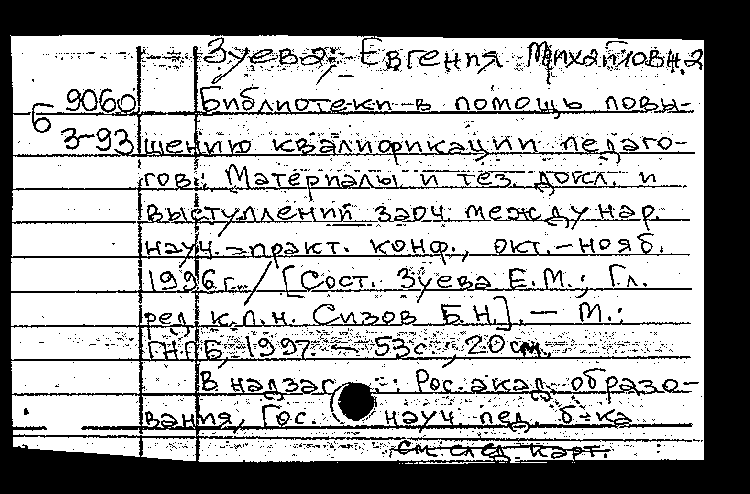 Зуева, Евгения Михайловна
Б 9060 Библиотеки в помощь повы-
З-93 шению квалификации педаго-
гов: Материалы и тез. докл. и
выступлений заоч. междунар.
науч.-практ. конф., окт.-нояб.
1996 г. / [Сост. Зуева Е.М.; Гл.
ред. к.п.н. Сизов Б.Н.]. — М.:
ГНПБ, 1997. — 53 с.; 20 см.
В надзаг.: Рос. акад. образо-
вания, Гос. науч. пед. б-ка
см. след. карт.